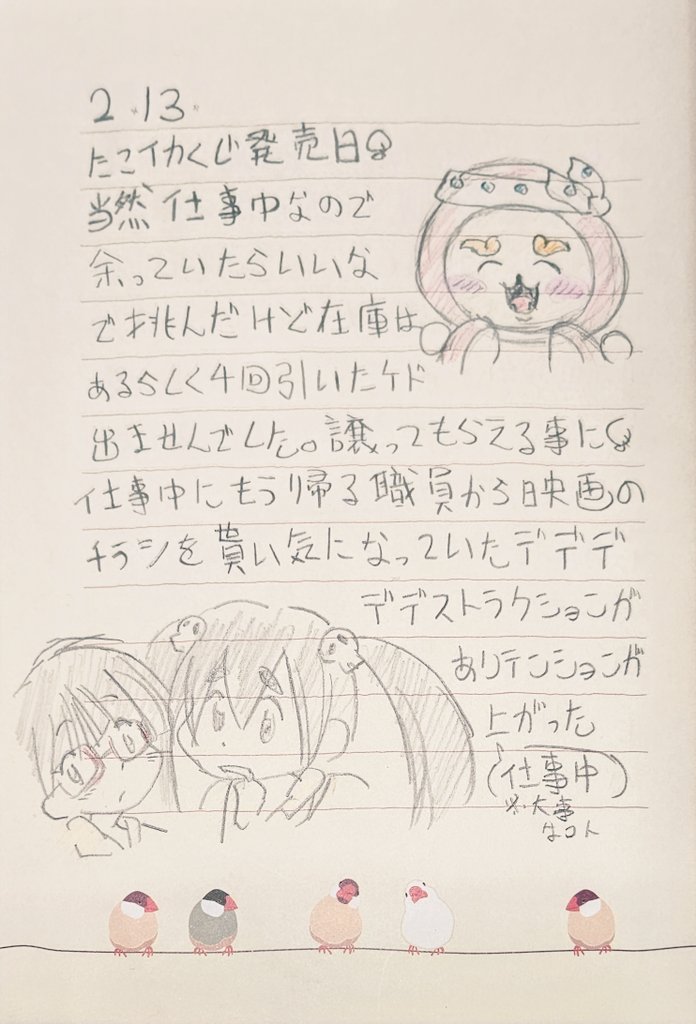 2.13.
たこイカくじ発売日
当然仕事中なので
余っていたらいいな
で挑んだけど在庫は
あるらしく4回引いたケド
出ませんでした。譲ってもらえる事に
仕事中にもう帰る職員から映画の
チラシを貰い気になっていたデデデ
デデストラクションが
ありテンションが
上がった
(仕事中)
※大事
なコト